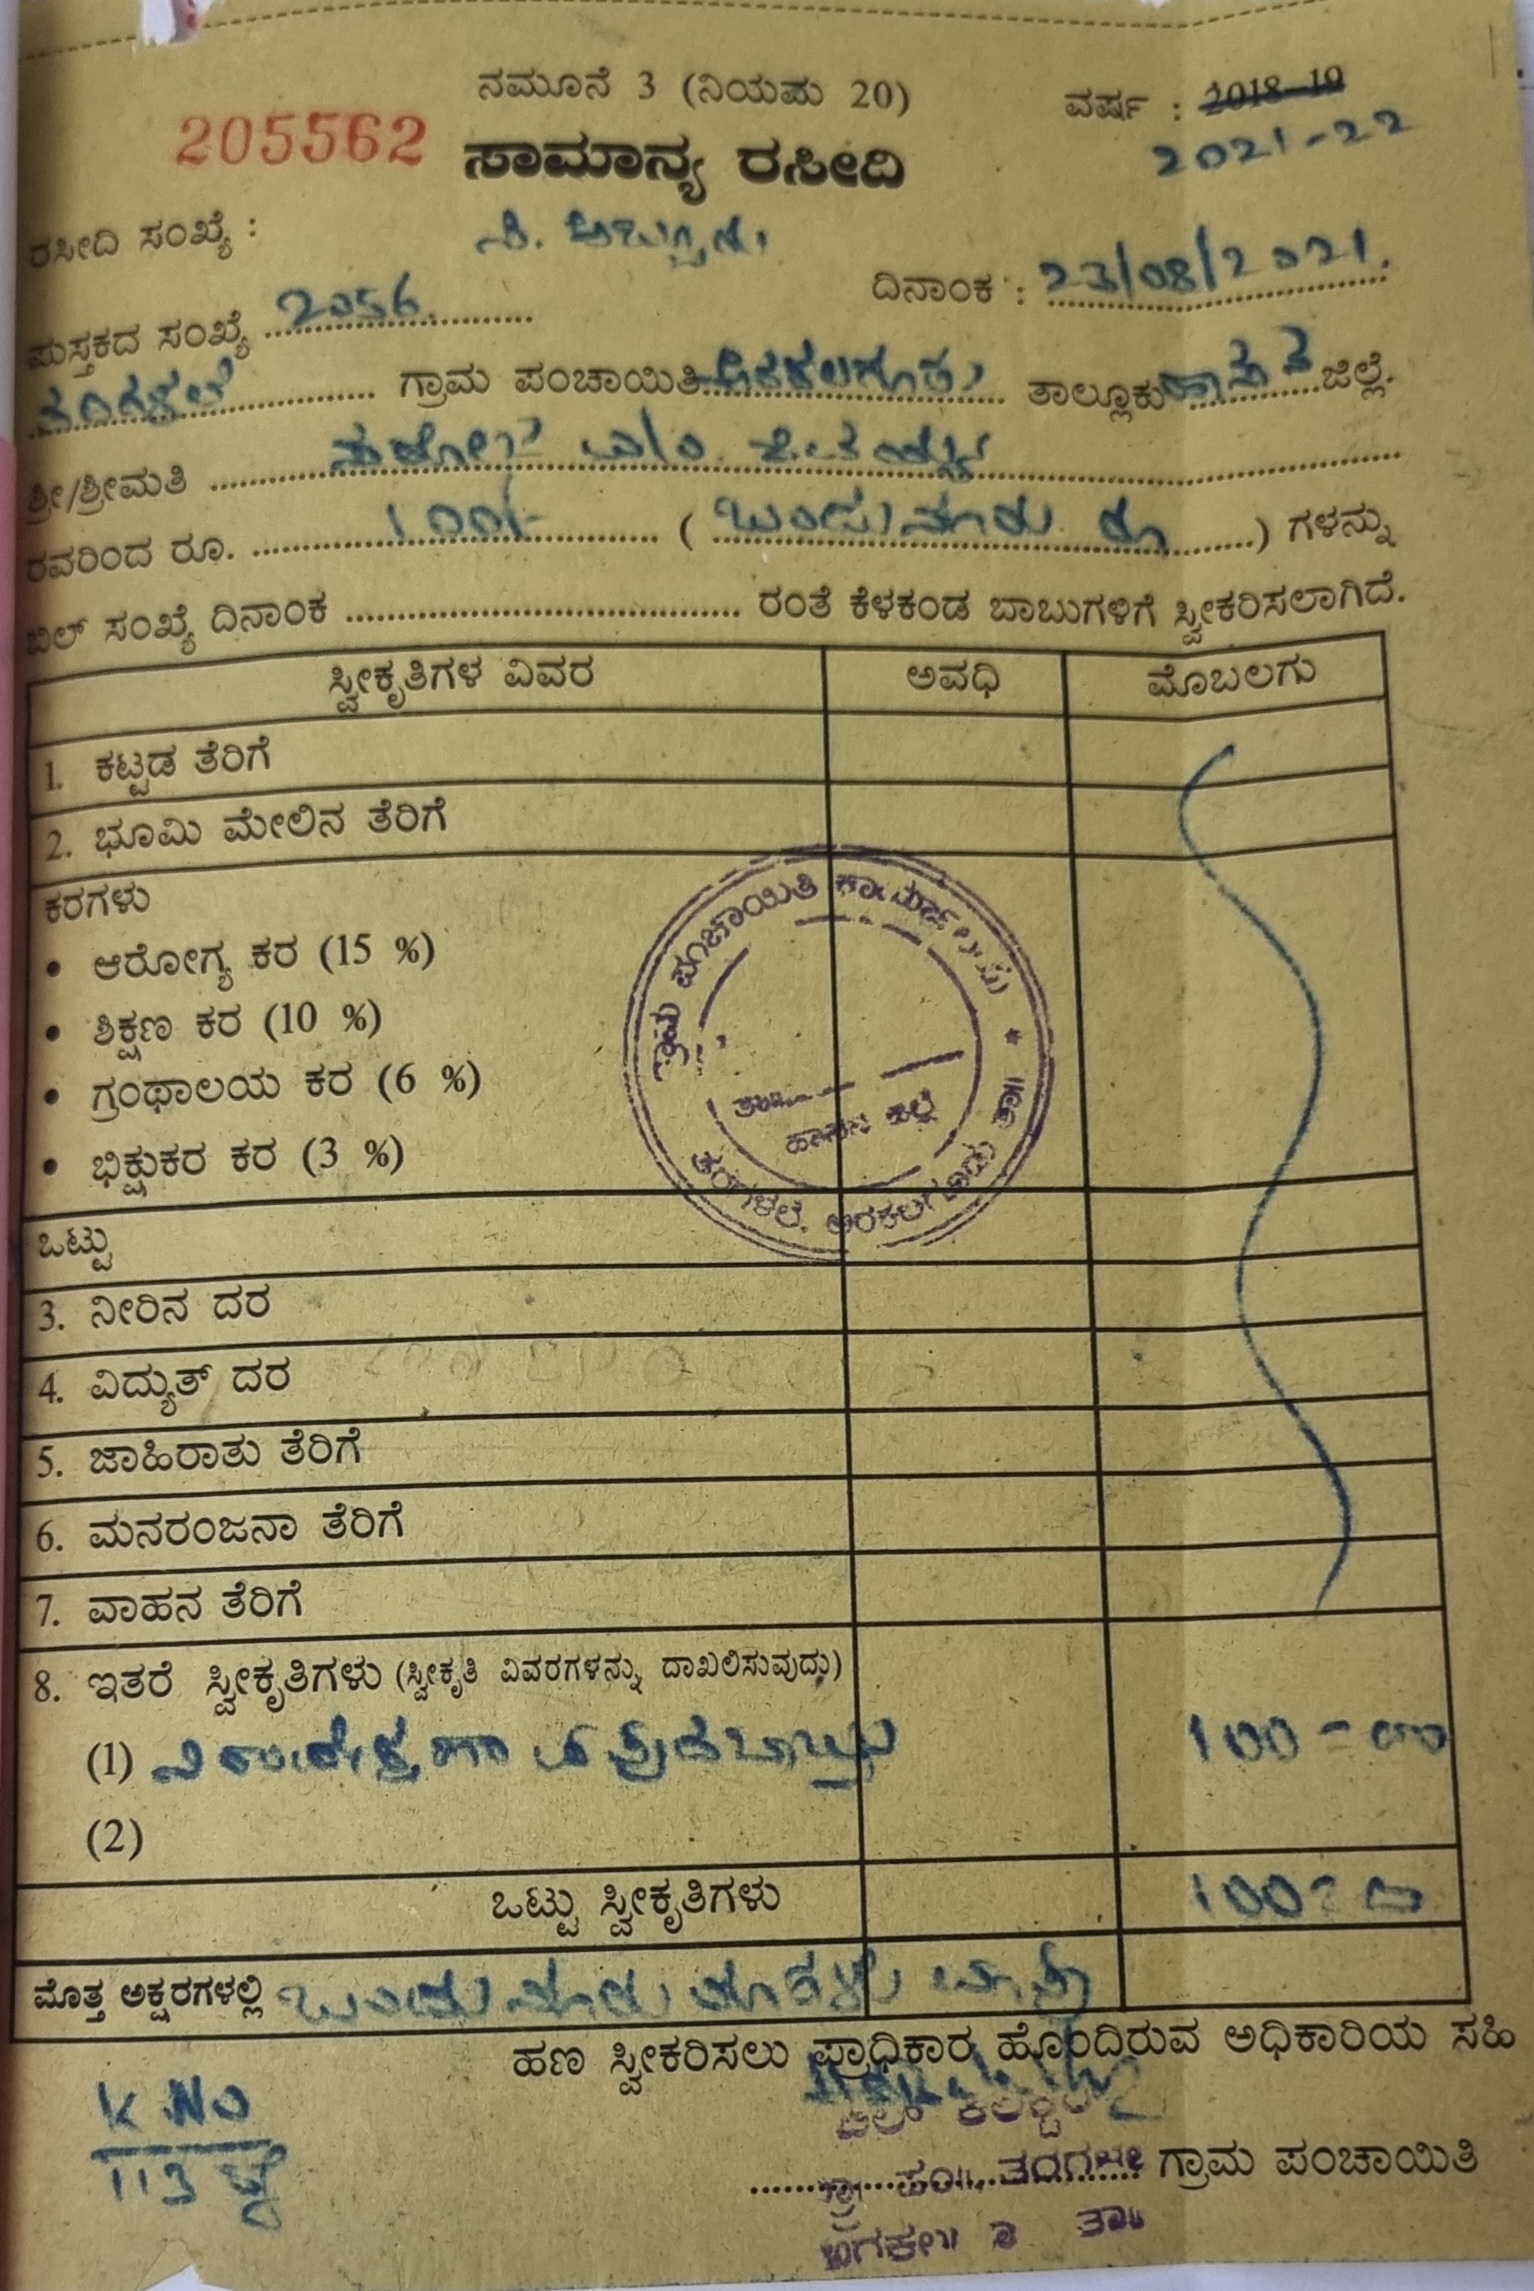 ನಮೂನೆ 3 (ನಿಯಮ 20)
ವರ್ಷ : 2018-19
2021-22
205562
ಸಾಮಾನ್ಯ ರಸೀದಿ
ರಸೀದಿ ಸಂಖ್ಯೆ :
ದಿನಾಂಕ : 23/08/2021.
ಪುಸ್ತಕದ ಸಂಖ್ಯೆ 2056.
ತರಿಗಳಲೆ ಗ್ರಾಮ ಪಂಚಾಯಿತಿ ಅರಕಲಗೂಡು ತಾಲ್ಲೂಕು ಹಾಸನ ಜಿಲ್ಲೆ.
ಶ್ರೀ/ಶ್ರೀಮತಿ
ರವರಿಂದ ರೂ. 100/- ( ಒಂದು ನೂರು ರೂ ) ಗಳನ್ನು
ಬಿಲ್ ಸಂಖ್ಯೆ ದಿನಾಂಕ ರಂತೆ ಕೆಳಕಂಡ ಬಾಬುಗಳಿಗೆ ಸ್ವೀಕರಿಸಲಾಗಿದೆ.
ಸ್ವೀಕೃತಿಗಳ ವಿವರ ಅವಧಿ ಮೊಬಲಗು
1. ಕಟ್ಟಡ ತೆರಿಗೆ
2. ಭೂಮಿ ಮೇಲಿನ ತೆರಿಗೆ
ಕರಗಳು
• ಆರೋಗ್ಯ ಕರ (15 %)
• ಶಿಕ್ಷಣ ಕರ (10 %)
• ಗ್ರಂಥಾಲಯ ಕರ (6 %)
• ಭಿಕ್ಷುಕರ ಕರ (3 %)
ಗ್ರಾಮ ಪಂಚಾಯಿತಿ ಕಾರ್ಯಾಲಯ
ಹಾಸನ ಜಿಲ್ಲೆ
ತರಿಗಳಲೆ, ಅರಕಲಗೂಡು
ಒಟ್ಟು
3. ನೀರಿನ ದರ
4. ವಿದ್ಯುತ್ ದರ
5. ಜಾಹಿರಾತು ತೆರಿಗೆ
6. ಮನರಂಜನಾ ತೆರಿಗೆ
7. ವಾಹನ ತೆರಿಗೆ
8. ಇತರೆ ಸ್ವೀಕೃತಿಗಳು (ಸ್ವೀಕೃತಿ ವಿವರಗಳನ್ನು ದಾಖಲಿಸುವುದು)
(1) ನಿರಾಪೇಕ್ಷಣಾ 100 = 00
(2)
ಒಟ್ಟು ಸ್ವೀಕೃತಿಗಳು 100 = 00
ಮೊತ್ತ ಅಕ್ಷರಗಳಲ್ಲಿ ಒಂದು ನೂರು ರೂಗಳು ಮಾತ್ರ
ಹಣ ಸ್ವೀಕರಿಸಲು ಪ್ರಾಧಿಕಾರ ಹೊಂದಿರುವ ಅಧಿಕಾರಿಯ ಸಹಿ
K.NO
113
ಬಿಲ್ ಕಲೆಕ್ಟರ್
ಗ್ರಾ ಪಂ|| ಗ್ರಾಮ ಪಂಚಾಯಿತಿ